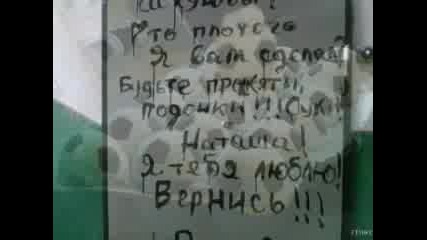 Что плохого
Я вам сделал
Будьте прокляты,
подонки!!! Суки!
Наташа!
Я тебя люблю!
Вернись!!!